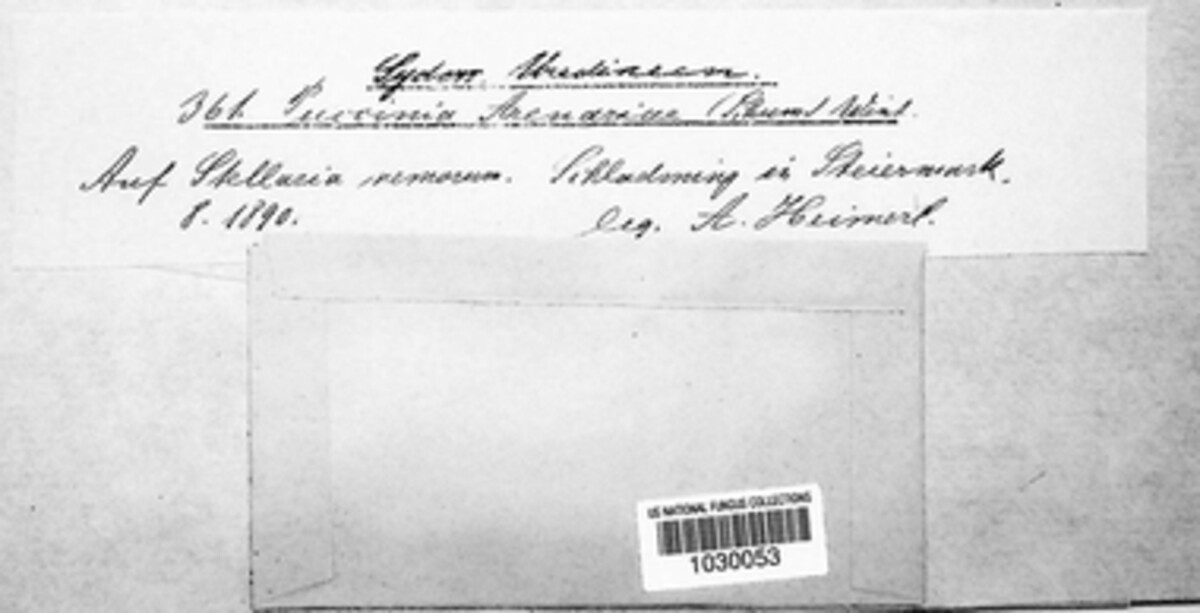 Sydow, Uredineen.
361. Puccinia Arenariae (Schum) Wint.
Auf Stellaria nemorum. Schladming in Steiermark.
8. 1890. leg. A. Heimerl.
US NATIONAL FUNGUS COLLECTIONS
1030053